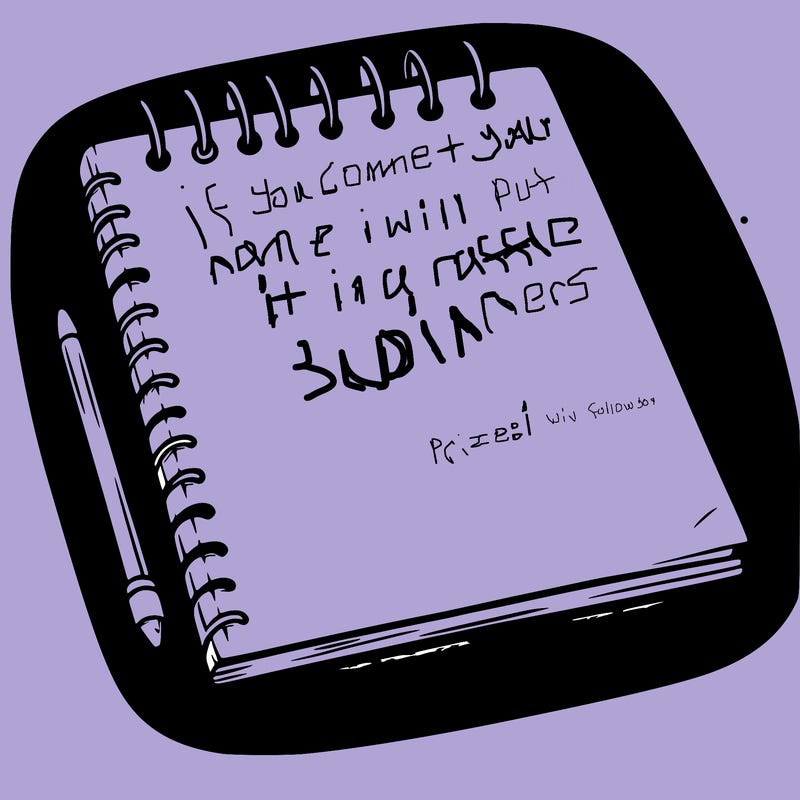 if you comnet your
name i will put
it in a raffle
3 winners
Prize: i will follow you